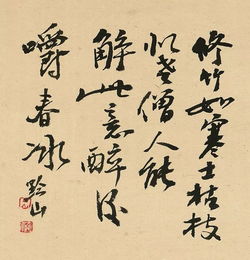 修竹如寒士枯枝
似老僧人能
解此意醉後
嚼春冰 黟山